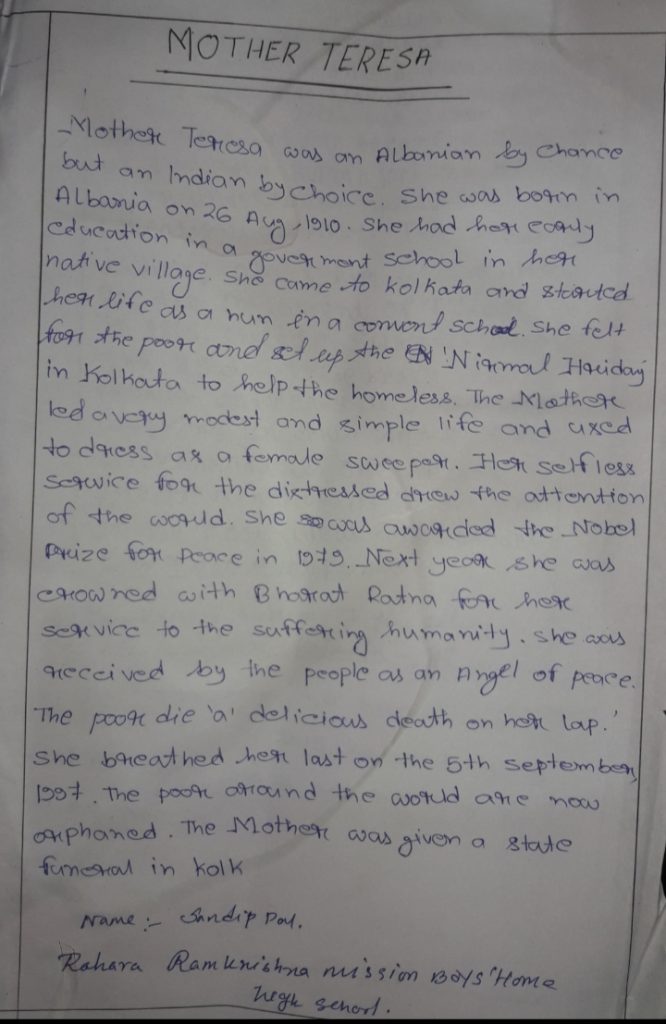 MOTHER TERESA
Mother Teresa was an Albanian by chance
but an Indian by choice. She was born in
Albania on 26 Aug, 1910. She had her early
education in a goverment school in her
native village. She came to kolkata and started
her life as a nun in a convent school. She felt
for the poor and set up the 'Nirmal Hriday'
in Kolkata to help the homeless. The Mother
led a very modest and simple life and used
to dress as a female sweeper. Her selfless
service for the distressed drew the attention
of the world. She was awarded the Nobel
Prize for Peace in 1979. Next year she was
crowned with Bharat Ratna for her
service to the suffering humanity. She was
received by the people as an Angel of peace.
The poor die 'a' delicious death on her lap.'
She breathed her last on the 5th september,
1997. The poor around the world are now
orphaned. The Mother was given a state
funeral in kolk
Name :- Sandip
Rahara Ramkrishna mission Boys' Home
High School.